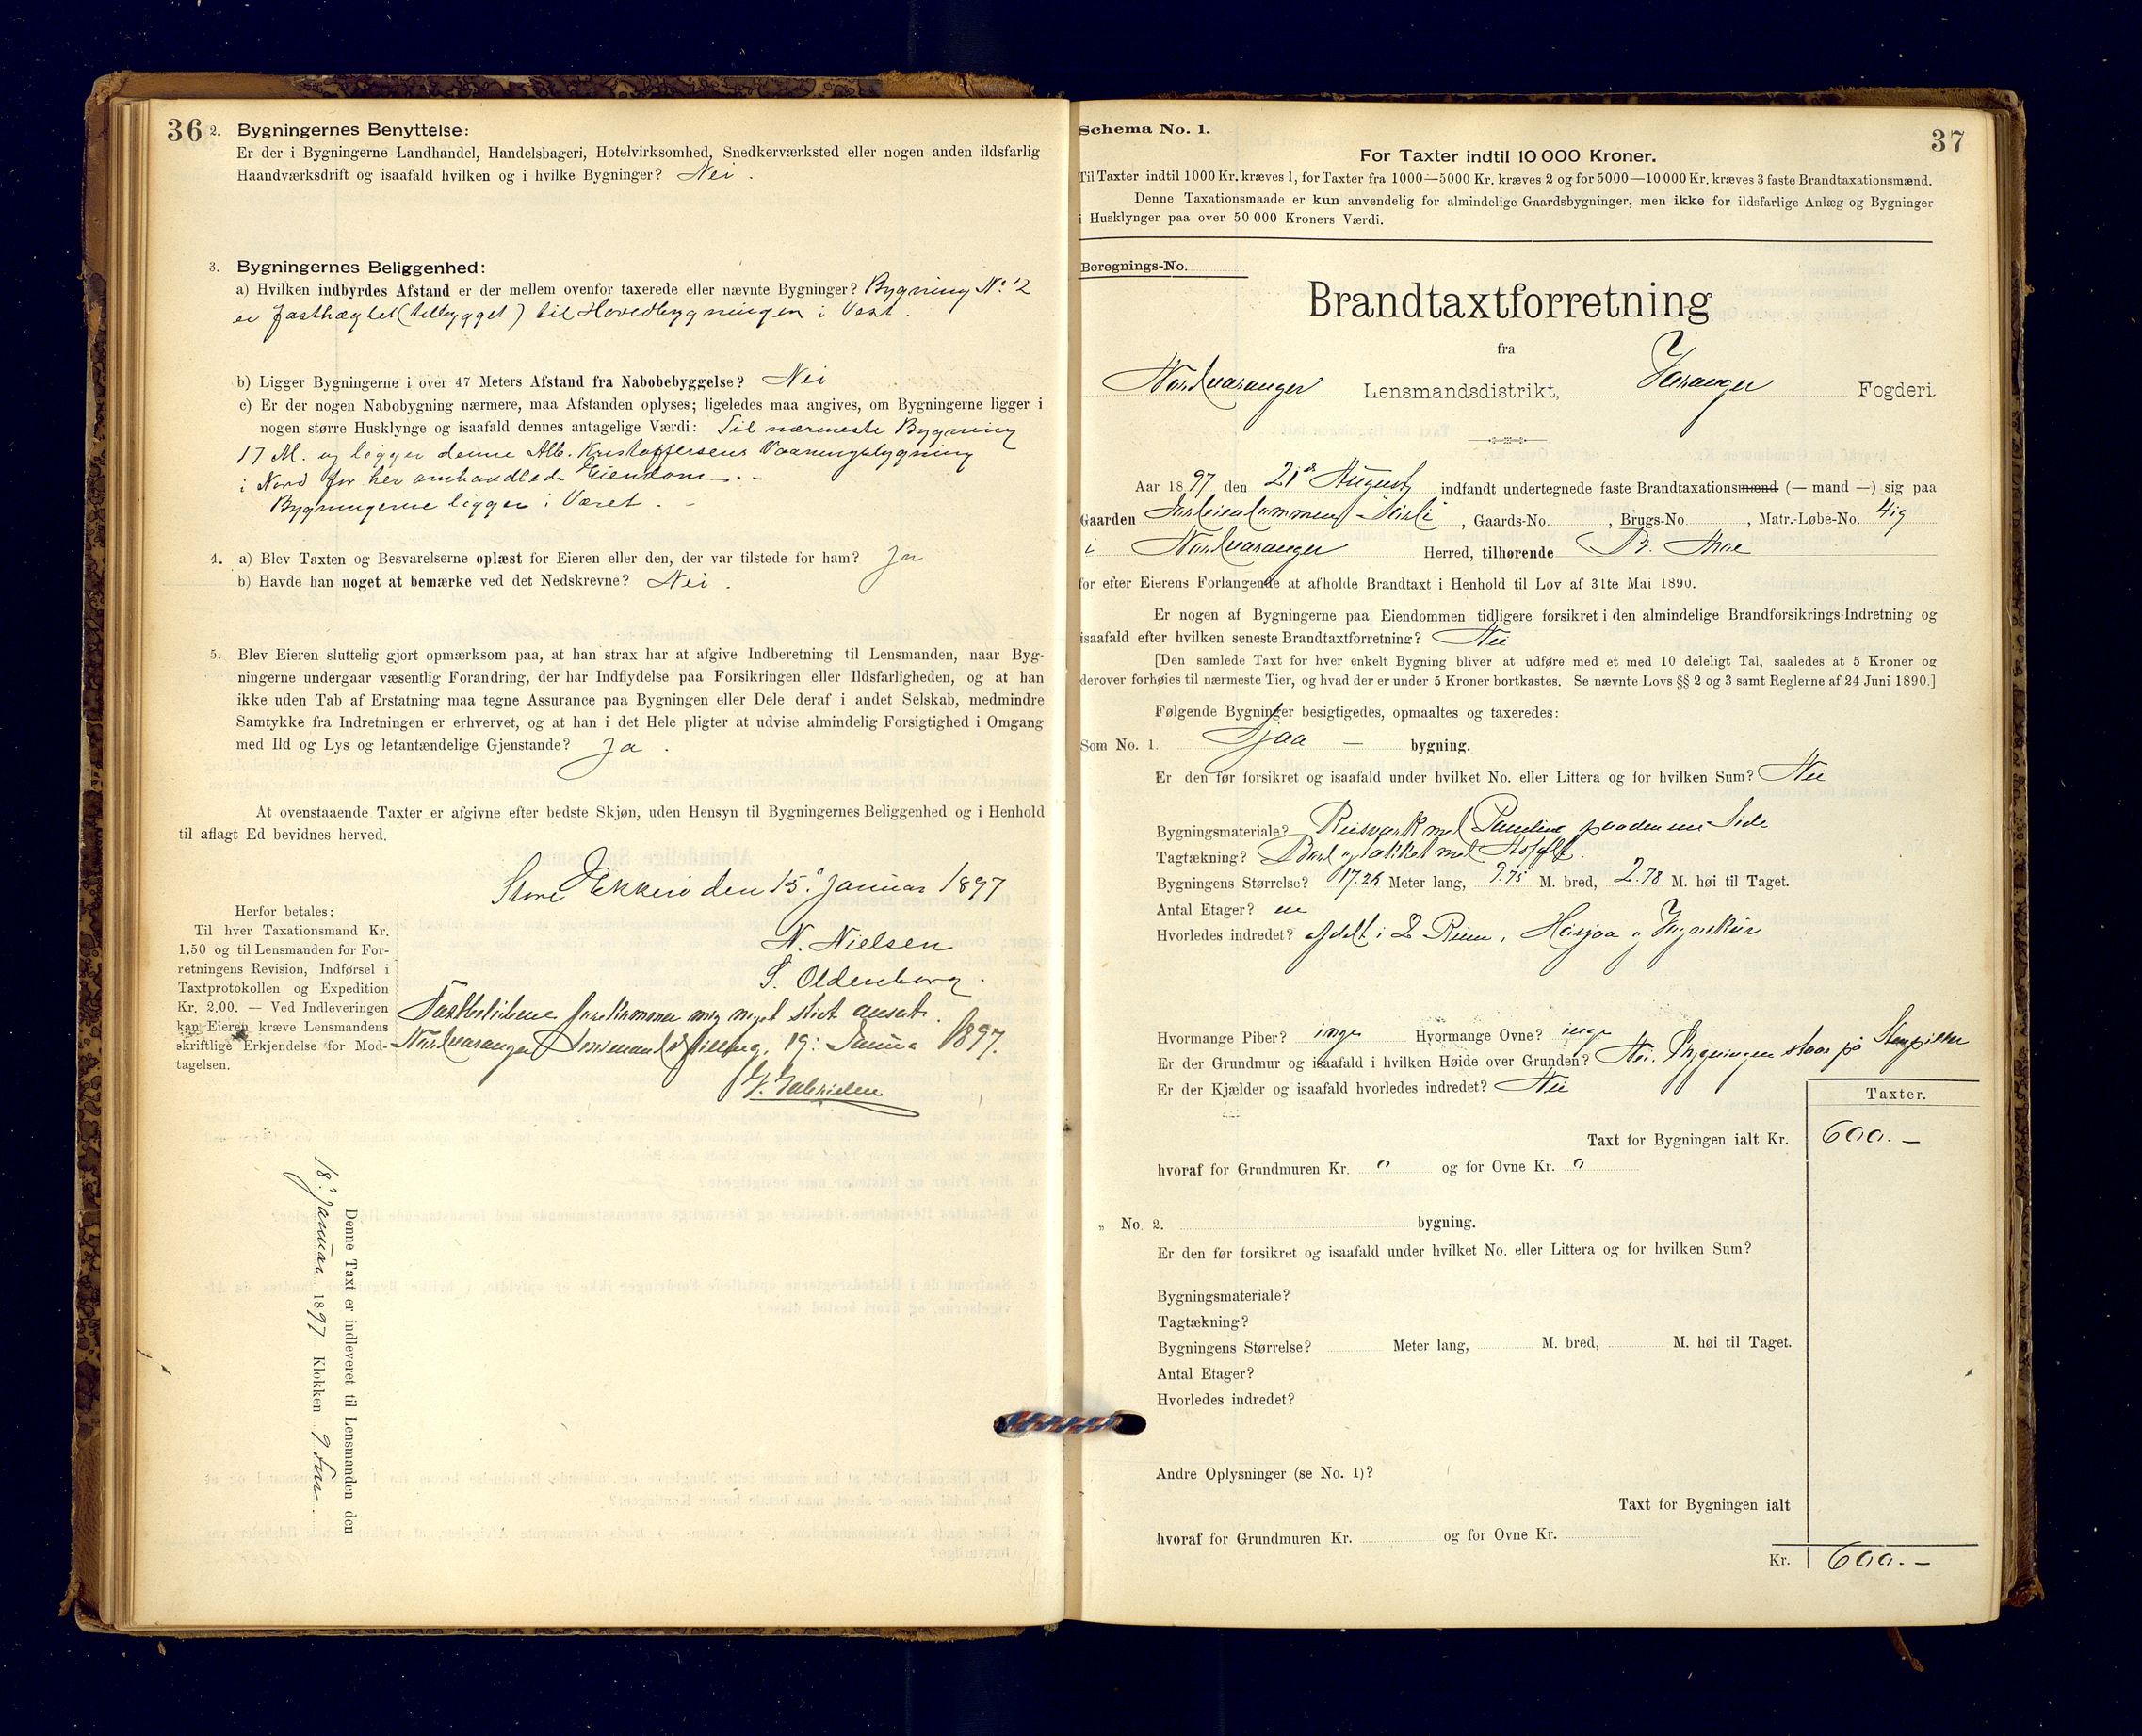 36
2. Bygningernes Benyttelse:
Er der i Bygningerne Landhandel, Handelsbageri, Hotelvirksomhed, Snedkerværksted eller nogen anden ildsfarlig
Haandværksdrift og isaafald hvilken og i hvilke Bygninger? Nei.
3. Bygningernes Beliggenhed:
a) Hvilken indbyrdes Afstand er der mellem ovenfor taxerede eller nævnte Bygninger? Bygning No 2
er fasthægtet (tilbygget) til Hovedbygningen i Vest.
b) Ligger Bygningerne i over 47 Meters Afstand fra Nabobebyggelse? Nei
c) Er der nogen Nabobygning nærmere, maa Afstanden oplyses; ligeledes maa angives, om Bygningerne ligger i
nogen større Husklynge og isaafald dennes antagelige Værdi: Til nærmeste Bygning
17 M. og ligger denne Alb. Kristoffersens Vaaningsbygning
i Nord for her omhandlede Eiendom. -
Bygningerne ligger i Været. -
4. a) Blev Taxten og Besvarelserne oplæst for Eieren eller den, der var tilstede for ham? Ja
b) Havde han noget at bemærke ved det Nedskrevne? Nei.
5. Blev Eieren sluttelig gjort opmærksom paa, at han strax har at afgive Indberetning til Lensmanden, naar Byg-
ningerne undergaar væsentlig Forandring, der har Indflydelse paa Forsikringen eller Ildsfarligheden, og at han
ikke uden Tab af Erstatning maa tegne Assurance paa Bygningen eller Dele deraf i andet Selskab, medmindre
Samtykke fra Indretningen er erhvervet, og at han i det Hele pligter at udvise almindelig Forsigtighed i Omgang
med Ild og Lys og letantændelige Gjenstande? Ja.
At ovenstaaende Taxter er afgivne efter bedste Skjøn, uden Hensyn til Bygningernes Beliggenhed og i Henhold
til aflagt Ed bevidnes herved.
Store Ekkerø den 15. Januar 1897
N. Nielsen
S. Oldenborg.
Herfor betales:
Til hver Taxationsmand Kr.
1.50 og til Lensmanden for For-
retningens Revision, Indførsel i
Taxtprotokollen og Expedition
Kr. 2.00. — Ved Indleveringen
kan Eieren kræve Lensmandens
skriftlige Erkjendelse for Mod-
tagelsen.
forekommer mig noget høit ansat.
Nordvaranger Lensmandsbestilling, 19. Januar 1897.
Denne Taxt er indleveret til Lensmanden den
18. Januar 1897 Klokken 9 Fm.
37
Schema No. 1.
For Taxter indtil 10 000 Kroner.
Til Taxter indtil 1000 Kr. kræves 1, for Taxter fra 1000—5000 Kr. kræves 2 og for 5000—10 000 Kr. kræves 3 faste Brandtaxationsmænd.
Denne Taxationsmaade er kun anvendelig for almindelige Gaardsbygninger, men ikke for ildsfarlige Anlæg og Bygninger
i Husklynger paa over 50 000 Kroners Værdi.
Beregnings-No.
Brandtaxtforretning
fra
Nordvaranger Lensmandsdistrikt, Varanger Fogderi.
Aar 1897 den 21de August indfandt undertegnede faste Brandtaxationsmænd (— mand —) sig paa
Gaarden , Gaards-No. , Brugs-No. , Matr.-Løbe-No. 41g
i Nordvaranger Herred, tilhørende
for efter Eierens Forlangende at afholde Brandtaxt i Henhold til Lov af 31te Mai 1890.
Er nogen af Bygningerne paa Eiendommen tidligere forsikret i den almindelige Brandforsikrings-Indretning og
isaafald efter hvilken seneste Brandtaxtforretning? Nei
[Den samlede Taxt for hver enkelt Bygning bliver at udføre med et med 10 deleligt Tal, saaledes at 5 Kroner og
derover forhøies til nærmeste Tier, og hvad der er under 5 Kroner bortkastes. Se nævnte Lovs §§ 2 og 3 samt Reglerne af 24 Juni 1890.]
Følgende Bygninger besigtigedes, opmaaltes og taxeredes:
Som No. 1. Sjaa — bygning.
Er den før forsikret og isaafald under hvilket No. eller Littera og for hvilken Sum? Nei
Bygningsmateriale? Reisværk med Paneling paa den ene Side
Tagtækning? Bord og tækket med Asfalt.
Bygningens Størrelse? 17.26 Meter lang, 9.75 M. bred, 2.78 M. høi til Taget.
Antal Etager? en
Hvorledes indredet? afdelt i 2 Rum, Høsjaa og
Hvormange Piber? inge Hvormange Ovne? inge
Er der Grundmur og isaafald i hvilken Høide over Grunden? Nei. Bygningen staar på Stenpiller
Er der Kjælder og isaafald hvorledes indredet? Nei
Taxter.
Taxt for Bygningen ialt Kr. 600.—
hvoraf for Grundmuren Kr. " og for Ovne Kr. "
„ No. 2. bygning.
Er den før forsikret og isaafald under hvilket No. eller Littera og for hvilken Sum?
Bygningsmateriale?
Tagtækning?
Bygningens Størrelse? Meter lang, M. bred, M. høi til Taget.
Antal Etager?
Hvorledes indredet?
Andre Oplysninger (se No. 1)?
Taxt for Bygningen ialt
hvoraf for Grundmuren Kr. og for Ovne Kr.
Kr. 600.—